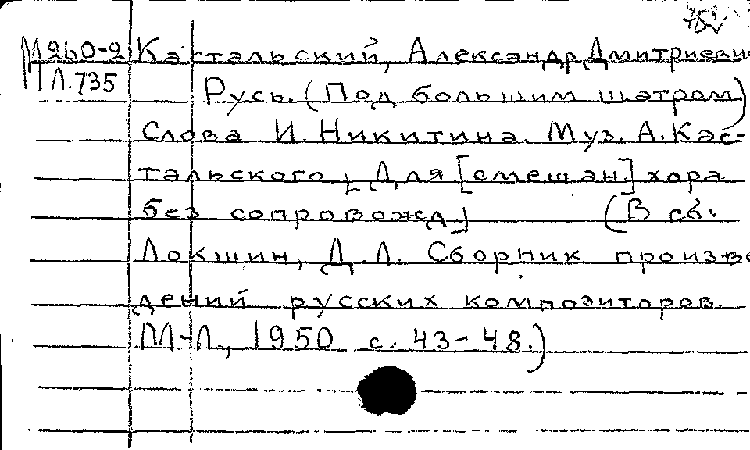 М960-2 Кастальский, Александр Дмитриеви
Л.735 Русь. (Под большим шатром)
Слова И. Никитина. Муз. А. Кас-
тальского, Для [смешан.] хора
без сопровожд.) (В сб.
Локшин, Д.Л. Сборник произве
дений русских композиторов.
М-Л, 1950 с. 43-48.)